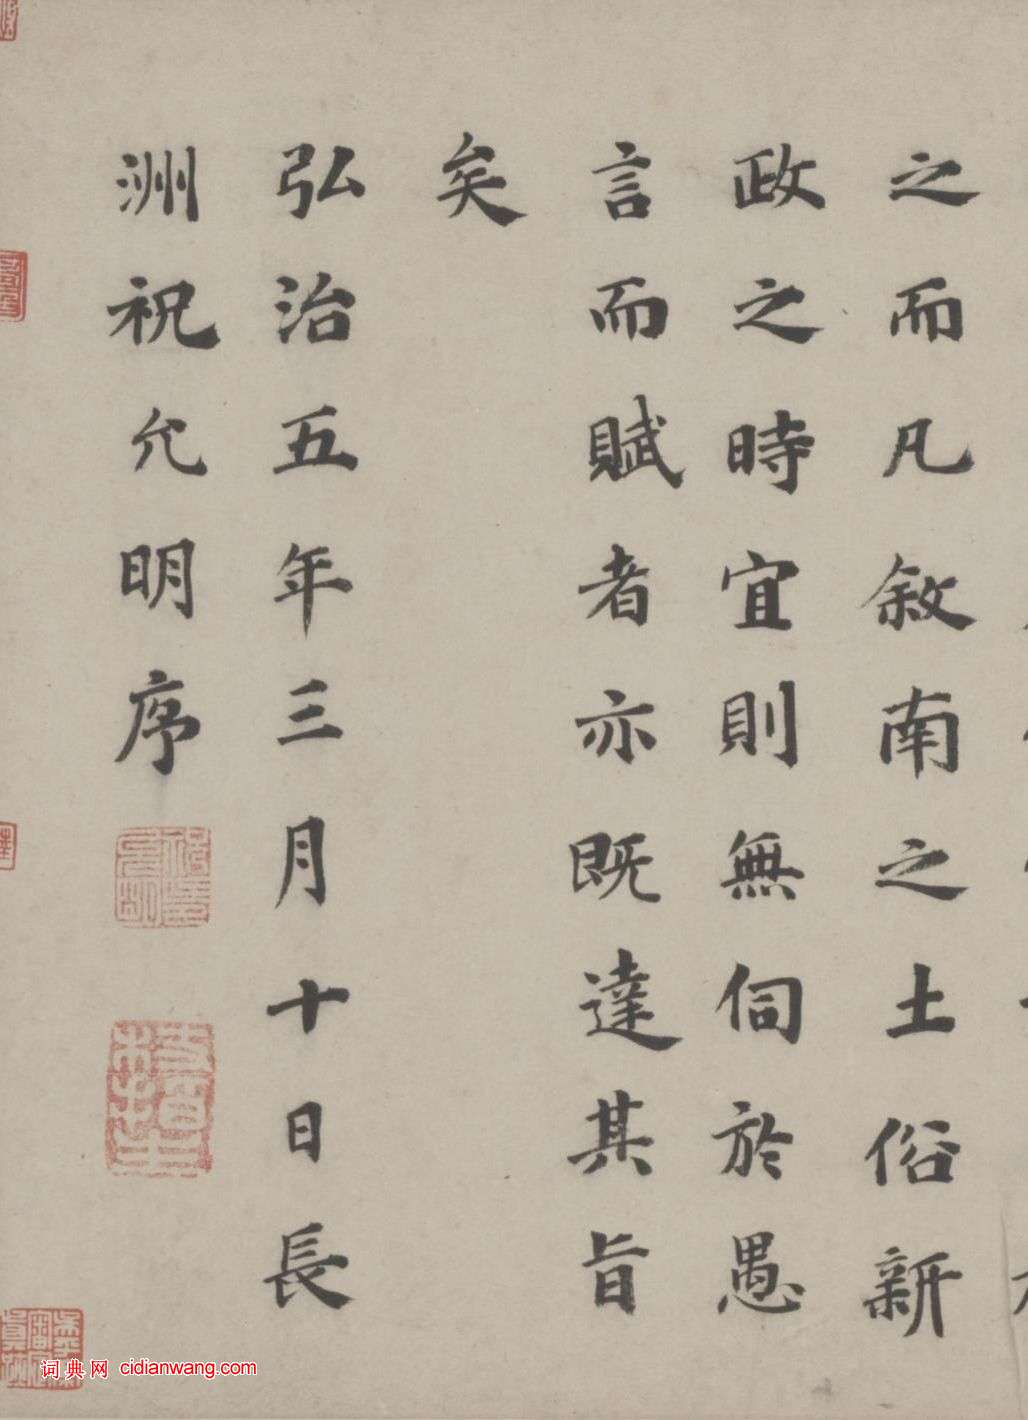 之而凡敘南之土俗新
政之時宜則無伺於愚
言而賦者亦既達其旨
矣
弘治五年三月十日長
洲祝允明序
枝指生
词典网 cidianwang.com